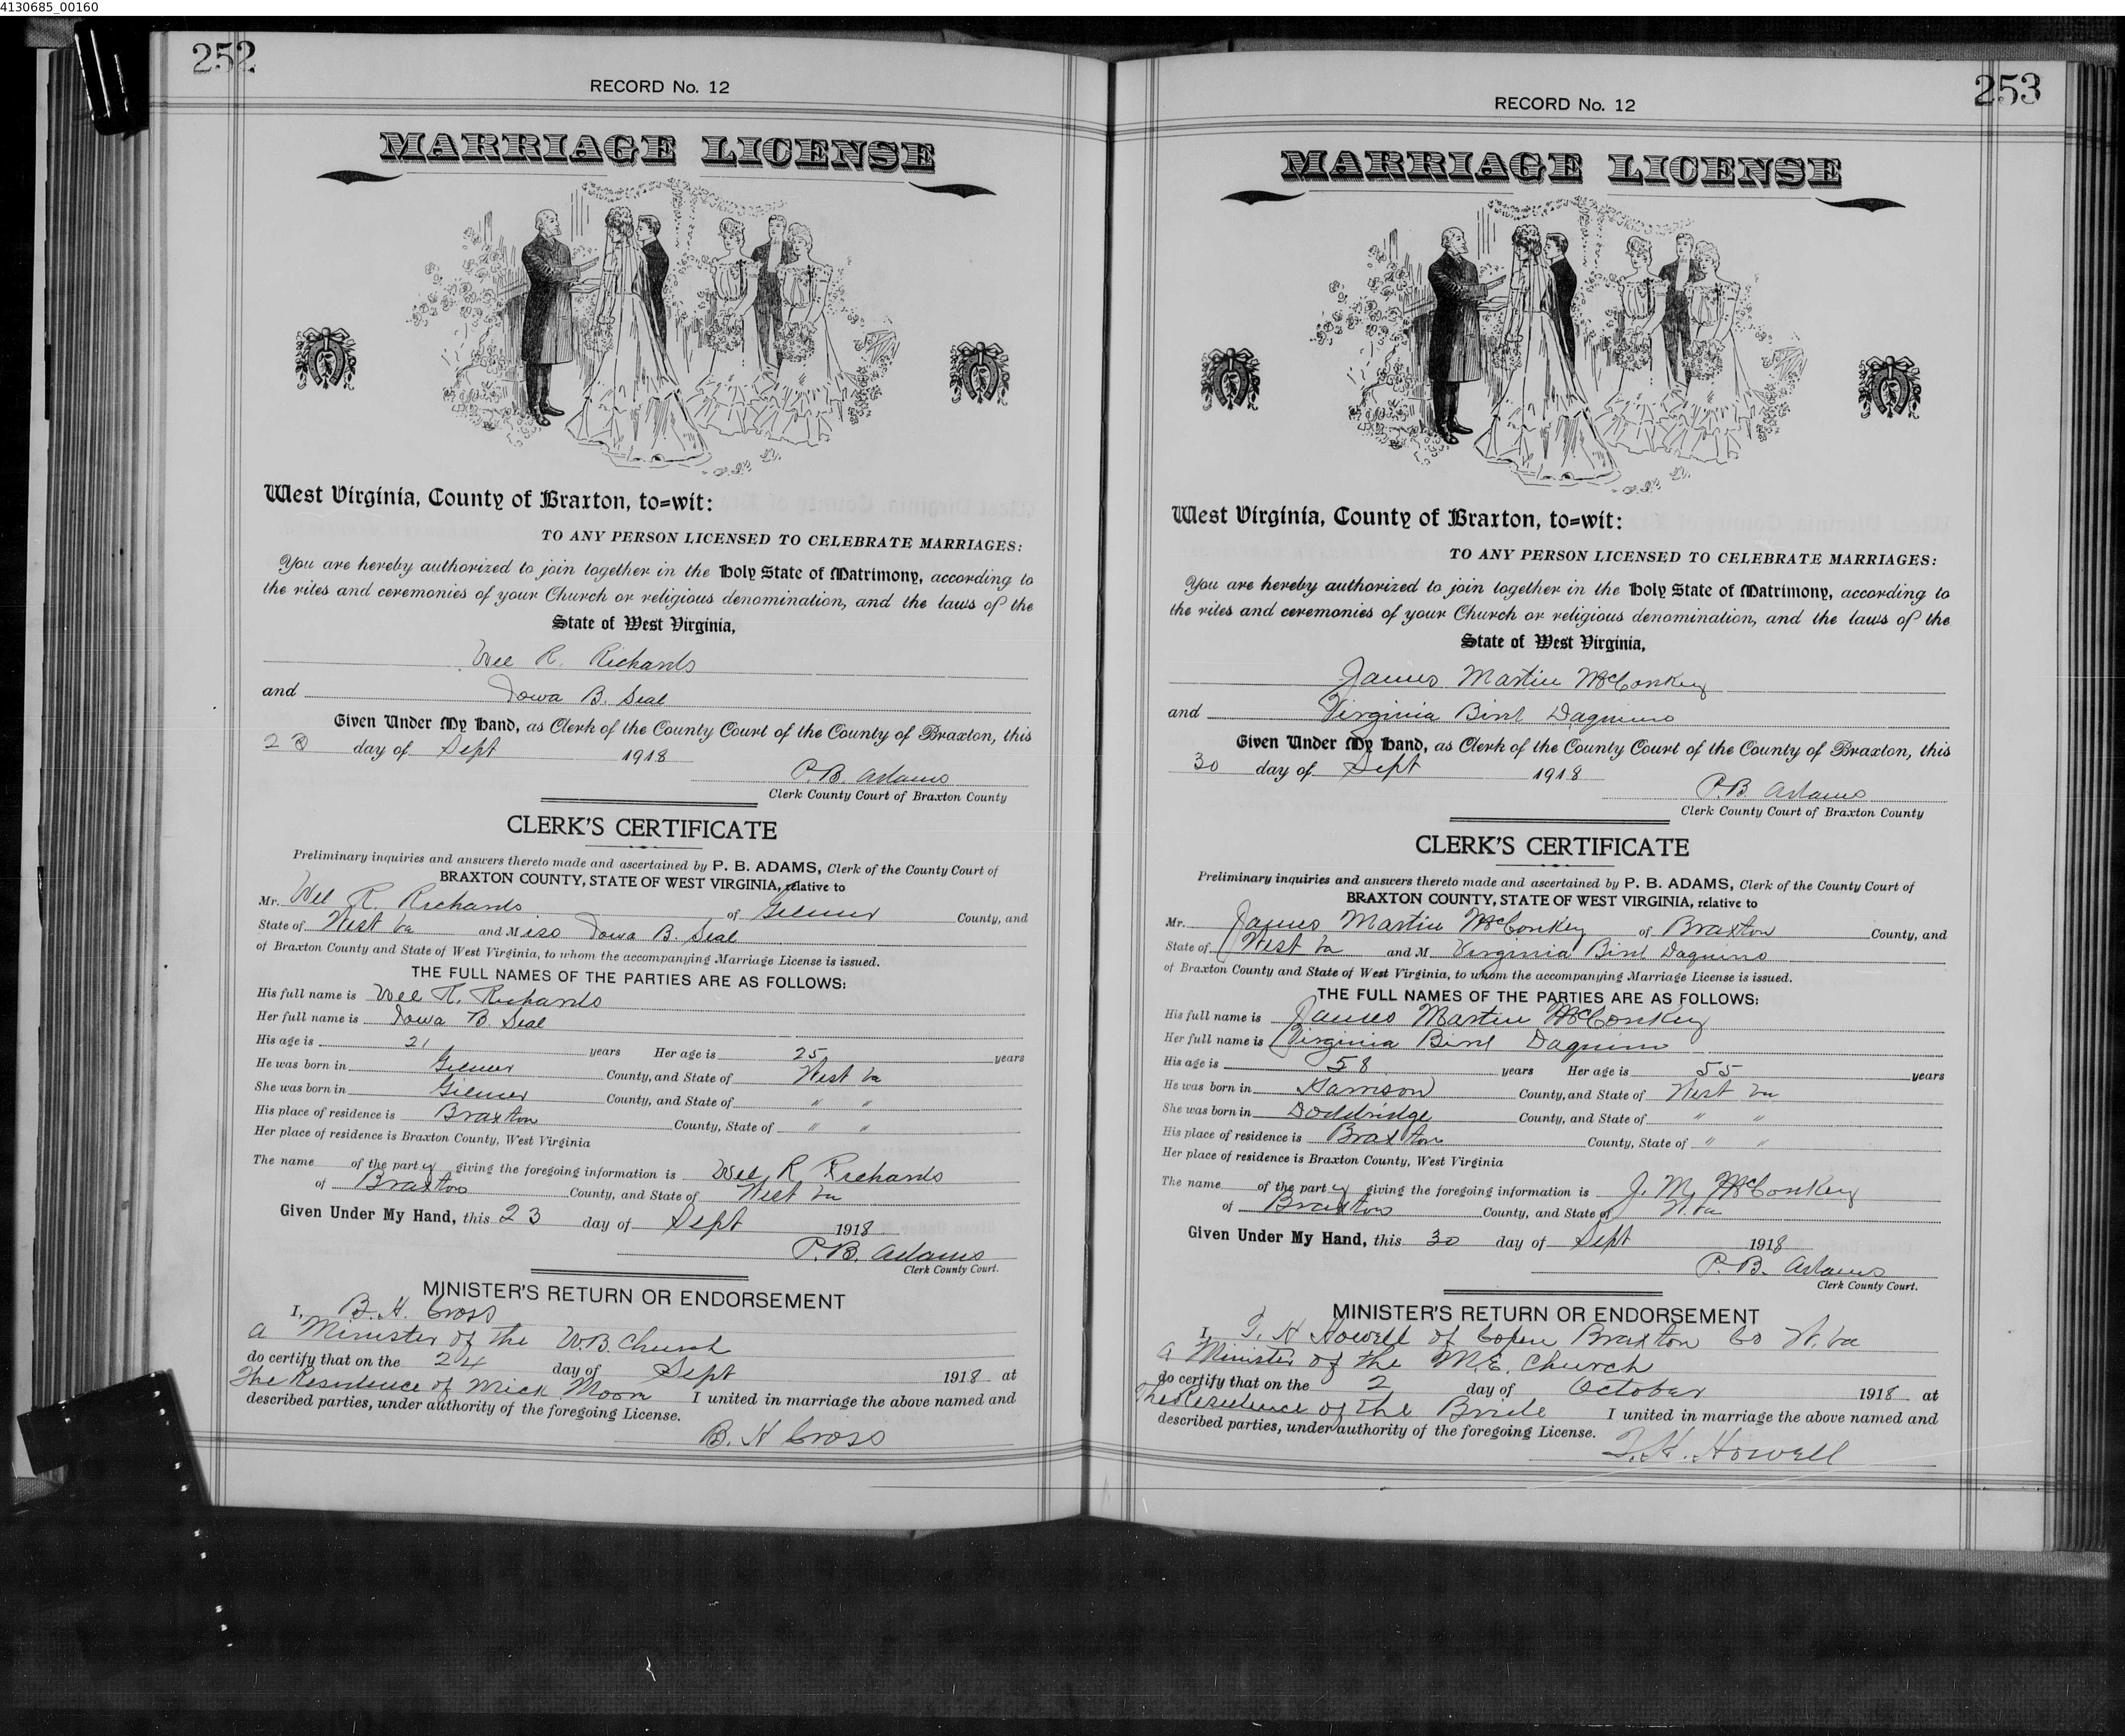 4130685_00160
252
RECORD No. 12
MARRIAGE LICENSE
West Virginia, County of Braxton, to=wit:
TO ANY PERSON LICENSED TO CELEBRATE MARRIAGES:
You are hereby authorized to join together in the Holy State of Matrimony, according to
the rites and ceremonies of your Church or religious denomination, and the laws of the
State of West Virginia,
R. Richards
and Iowa B. Seal
Given Under My Hand, as Clerk of the County Court of the County of Braxton, this
day of Sept 1918
P. B. Adams
Clerk County Court of Braxton County
CLERK'S CERTIFICATE
Preliminary inquiries and answers thereto made and ascertained by P. B. ADAMS, Clerk of the County Court of
BRAXTON COUNTY, STATE OF WEST VIRGINIA, relative to
Mr. R. Richards of Gilmer County, and
State of West Va and Miss Iowa B. Seal
of Braxton County and State of West Virginia, to whom the accompanying Marriage License is issued.
THE FULL NAMES OF THE PARTIES ARE AS FOLLOWS:
His full name is R. Richards
Her full name is Iowa B. Seal
His age is 21 years Her age is 25 years
He was born in Gilmer County, and State of West Va
She was born in Gilmer County, and State of " "
His place of residence is Braxton County, State of " "
Her place of residence is Braxton County, West Virginia
The name of the party giving the foregoing information is R Richards
of Braxton County, and State of West Va
Given Under My Hand, this 23 day of Sept 1918
P. B. Adams
Clerk County Court.
MINISTER'S RETURN OR ENDORSEMENT
I, B. H. Cross
a Minister of the Church
do certify that on the 24 day of Sept 1918 at
The Residence of Mick Moore I united in marriage the above named and
described parties, under authority of the foregoing License.
B. H Cross
253
RECORD No. 12
MARRIAGE LICENSE
West Virginia, County of Braxton, to=wit:
TO ANY PERSON LICENSED TO CELEBRATE MARRIAGES:
You are hereby authorized to join together in the Holy State of Matrimony, according to
the rites and ceremonies of your Church or religious denomination, and the laws of the
State of West Virginia,
James Martin McConkey
and Virginia Daquino
Given Under My Hand, as Clerk of the County Court of the County of Braxton, this
30 day of Sept 1918
P. B. Adams
Clerk County Court of Braxton County
CLERK'S CERTIFICATE
Preliminary inquiries and answers thereto made and ascertained by P. B. ADAMS, Clerk of the County Court of
BRAXTON COUNTY, STATE OF WEST VIRGINIA, relative to
Mr. James Martin McConkey of Braxton County, and
State of West Va and M Virginia Daquino
of Braxton County and State of West Virginia, to whom the accompanying Marriage License is issued.
THE FULL NAMES OF THE PARTIES ARE AS FOLLOWS:
His full name is James Martin McConkey
Her full name is Virginia Daquino
His age is 58 years Her age is 55 years
He was born in Harrison County, and State of West Va
She was born in Doddridge County, and State of " "
His place of residence is Braxton County, State of " "
Her place of residence is Braxton County, West Virginia
The name of the party giving the foregoing information is J. M. McConkey
of Braxton County, and State of W. Va
Given Under My Hand, this 30 day of Sept 1918
P. B. Adams
Clerk County Court.
MINISTER'S RETURN OR ENDORSEMENT
I, T. H Howell of Copen Braxton Co W. Va
a Minister of the M.E. Church
do certify that on the 2 day of October 1918 at
The Residence of the Bride I united in marriage the above named and
described parties, under authority of the foregoing License.
T. H. Howell